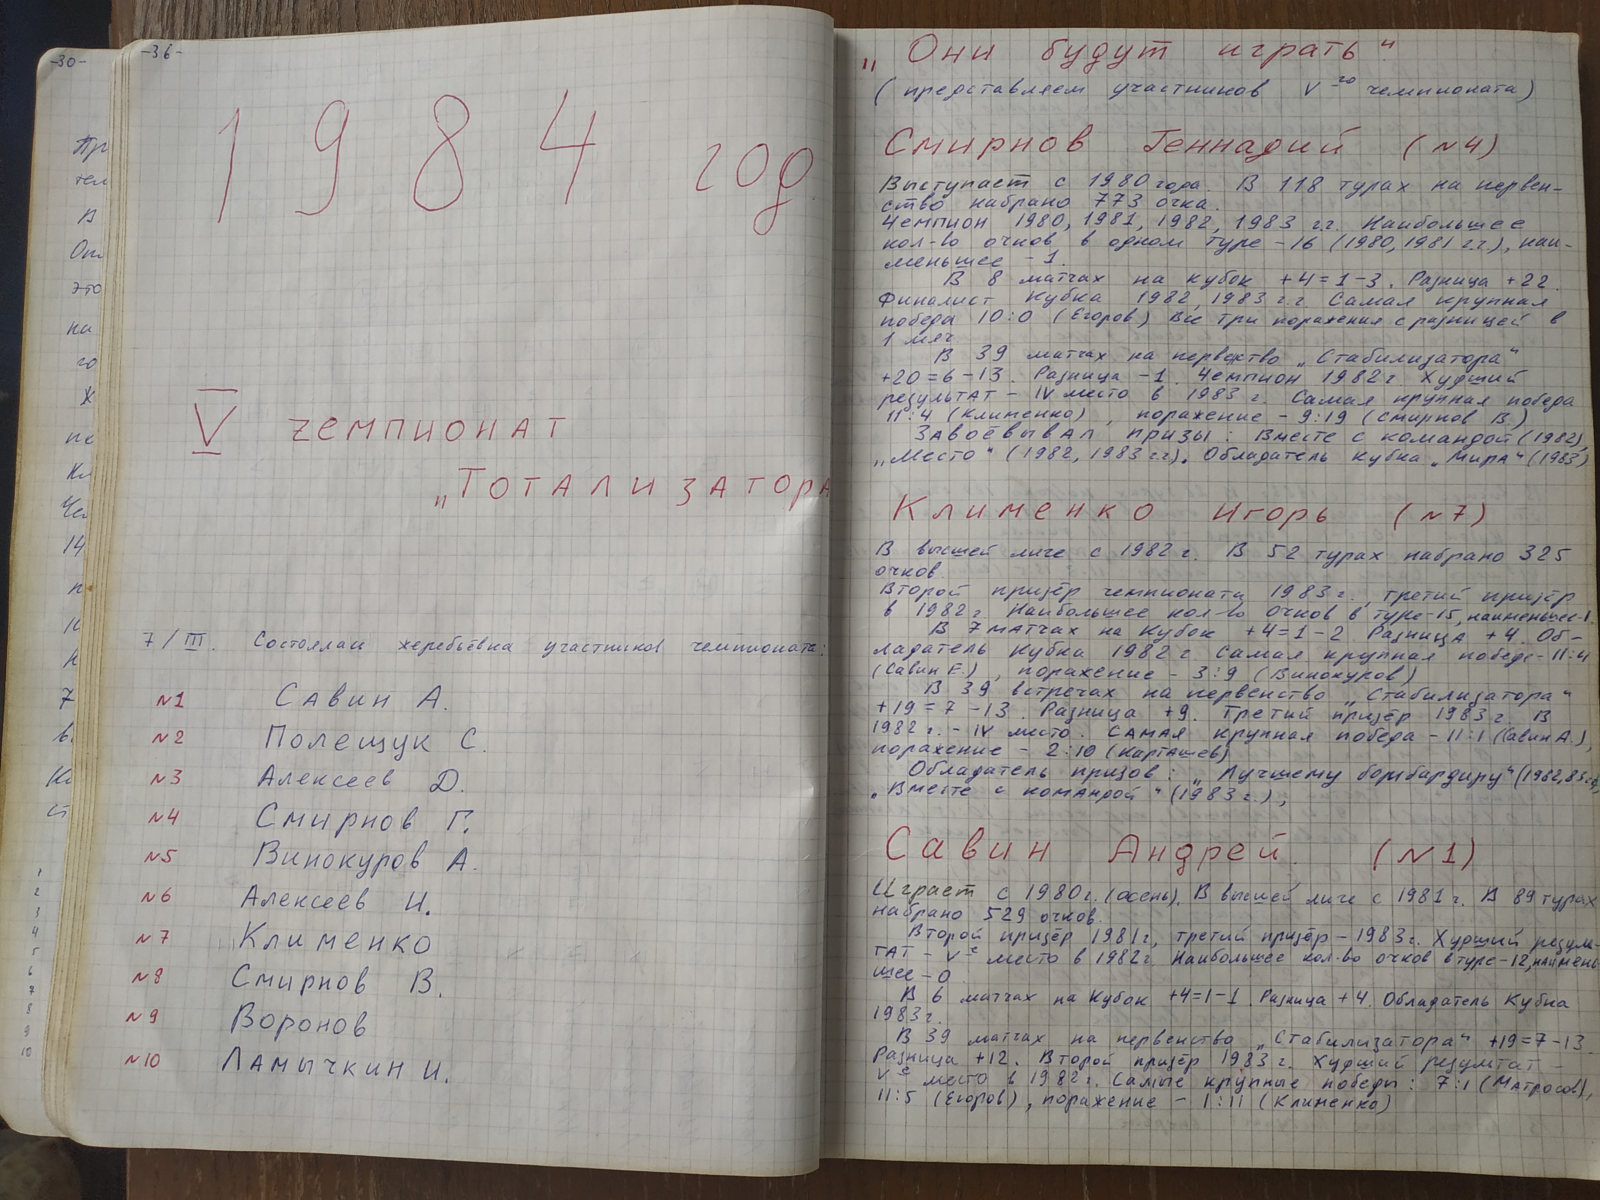 -30-
-36-
1984 год
V чемпионат
„Тотализатора
7/III. Состоялась жеребьёвка участников чемпионата:
N1 Савин А.
N2 Полещук С.
N3 Алексеев Д.
N4 Смирнов Г.
N5 Винокуров А.
N6 Алексеев И.
N7 Клименко
N8 Смирнов В.
N9 Воронов
N10 Ламычкин И.
„Они будут играть“
(представляем участников V-го чемпионата)
Смирнов Геннадий (N4)
Выступает с 1980 года. В 118 турах на первен-
ство набрано 773 очка.
Чемпион 1980, 1981, 1982, 1983 г.г. Наибольшее
кол-во очков в одном туре - 16 (1980, 1981 г.г.), наи-
меньшее - 1.
В 8 матчах на кубок +4=1-3. Разница +22.
Финалист Кубка 1982, 1983 г.г. Самая крупная
победа 10:0 (Егоров) Все три поражения с разницей в
1 мяч
В 39 матчах на первенство „Стабилизатора“
+20=6-13. Разница -1. Чемпион 1982 г. Худший
результат - IV место в 1983 г. Самая крупная победа
11:4 (Клименко), поражение - 9:19 (Смирнов В.)
Завоёвывал призы: Вместе с командой (1982),
„Место“ (1982, 1983 г.г.). Обладатель Кубка „Мира“ (1983)
Клименко Игорь (N7)
В высшей лиге с 1982 г. В 52 турах набрано 325
очков.
Второй призёр чемпионата 1983 г., третий призёр
в 1982 г. Наибольшее кол-во очков в туре-15, наименьшее-1.
В 7 матчах на Кубок +4=1-2 Разница +4. Об-
ладатель Кубка 1982 г Самая крупная победа-11:4
(Савин Е.), поражение - 3:9 (Винокуров)
В 39 встречах на первенство „Стабилизатора“
+19=7-13. Разница +9. Третий призёр 1983 г. В
1982 г. - IV место. Самая крупная победа - 11:1 (Савин А.),
поражение - 2:10 (Карташев)
Обладатель призов: „Лучшему бомбардиру“ (1982,83 г.г),
„Вместе с командой“ (1983 г.),
Савин Андрей (N1)
Играет с 1980 г. (осень). В высшей лиге с 1981 г. В 89 турах
набрано 529 очков.
Второй призёр 1981 г, третий призёр - 1983 г. Худший резуль-
тат - V-е место в 1982 г. Наибольшее кол-во очков в туре-12, наимень-
шее - 0
В 6 матчах на Кубок +4=1-1 Разница +4. Обладатель Кубка
1983 г.
В 39 матчах на первенство „Стабилизатора“ +19=7-13.
Разница +12. Второй призёр 1983 г. Худший результат -
V-е место в 1982 г. Самые крупные победы: 7:1 (Матросов),
11:5 (Егоров), поражение - 1:11 (Клименко)